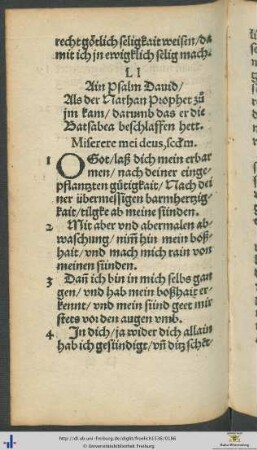 recht götlich seligkait weisen/ da
mit ich jn ewigklich selig mach.
L I
Ain Psalm Dauid/
Als der Nathan Prophet zů
jm kam/ darumb das er die
Batsabea beschlaffen hett.
Miserere mei deus, secūm.
1 O Got/ laß dich mein erbar
men/ nach deiner einge-
pflanzten gütigkait/ Nach dei
ner übermessigen barmhertzig-
kait/ tilgke ab meine sünden.
2. Mit aber vnd abermalen ab-
waschung/ nim̄ hin mein boß-
hait/ vnd mach mich rain von
meinen sünden.
3 Dañ ich bin in mich selbs gan
gen/ vnd hab mein boßhait er-
kennt/ vnd mein sünd geet mir
stets vor den augen vmb.
4. In dich/ ja wider dich allain
hab ich gesündigt/ vñ diß schēt-
© Universitätsbibliothek Freiburg